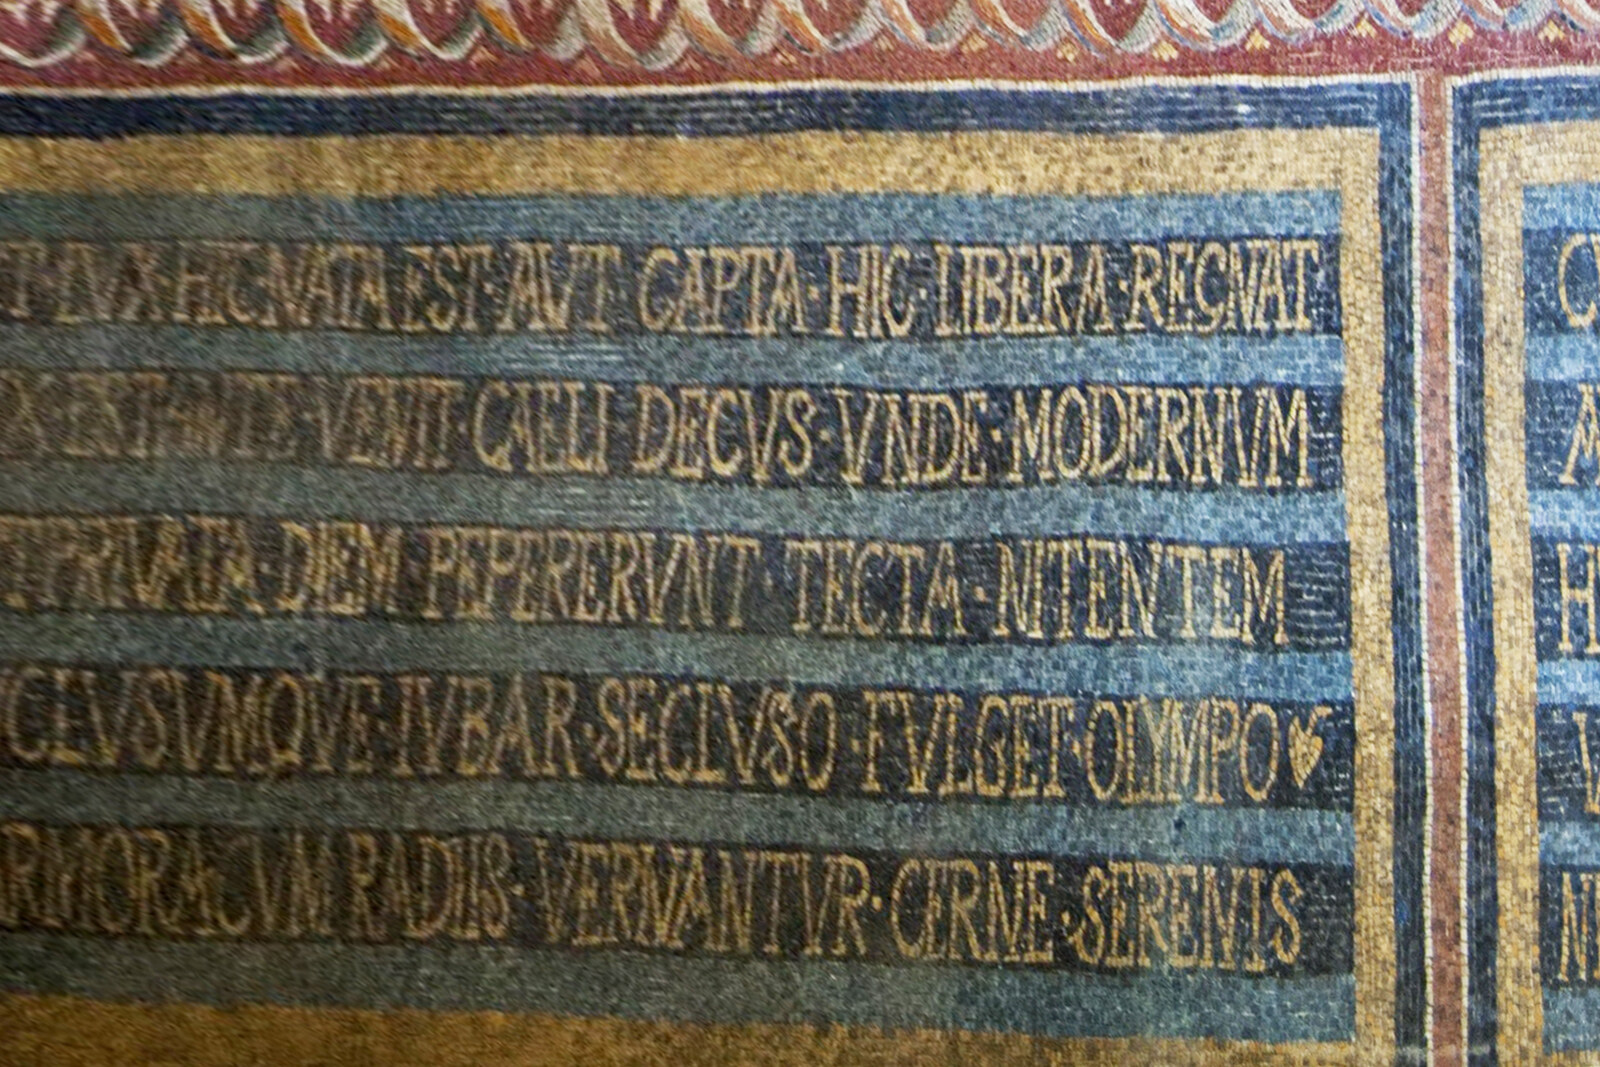 T·LVX·HIC·NATA EST·AVT CAPTA·HIC·LIBERA·REGNAT
X·EST·ANTE·VENIT·CAELI DECVS·VNDE·MODERNVM
T PRIVATA·DIEM PEPERERVNT TECTA·NITENTEM
CLVSVMQVE·IVBAR·SECLVSO·FVLGET·OLYMPO
RMORA CVM RADIIS·VERNANTVR·CERNE·SERENIS